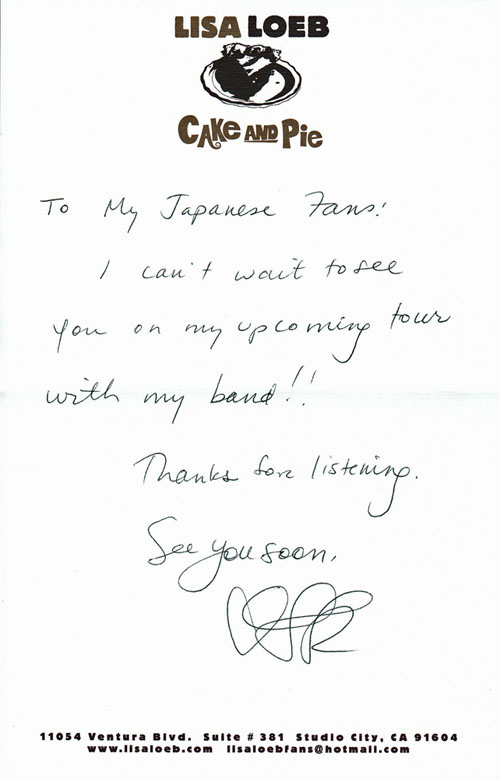 LISA LOEB
CAKe AND Pie
To My Japanese Fans!
I can't wait to see
you on my upcoming tour
with my band!!
Thanks for listening.
See you soon,
11054 Ventura Blvd. Suite # 381 Studio City, CA 91604
www.lisaloeb.com lisaloebfans@hotmail.com